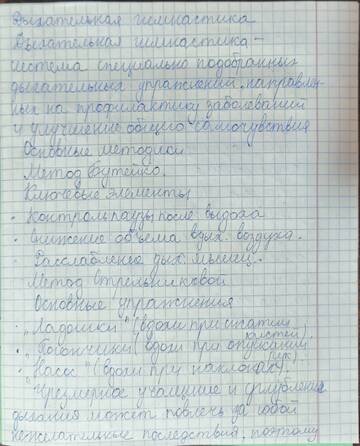 Дыхательная гимнастика
Дыхательная гимнастика -
система специально подобранных
дыхательных упражнений, направлен-
ных на профилактику заболеваний
и улучшение общего самочувствия
Основные методики
Метод Бутейко.
Ключевые элементы
· Контроль паузы после выдоха
· снижение объема вдых. воздуха.
· Расслабление дых. мышец.
Метод Стрельниковой
Основные упражнения
· "Ладошки" (вдохи при сжатии
кистей)
· "Погончики" (вдохи при опускании
рук)
· "Насос" (вдохи при наклонах).
Чрезмерное учащение и углубление
дыхания может повлечь за собой
нежелательные последствия, поэтому